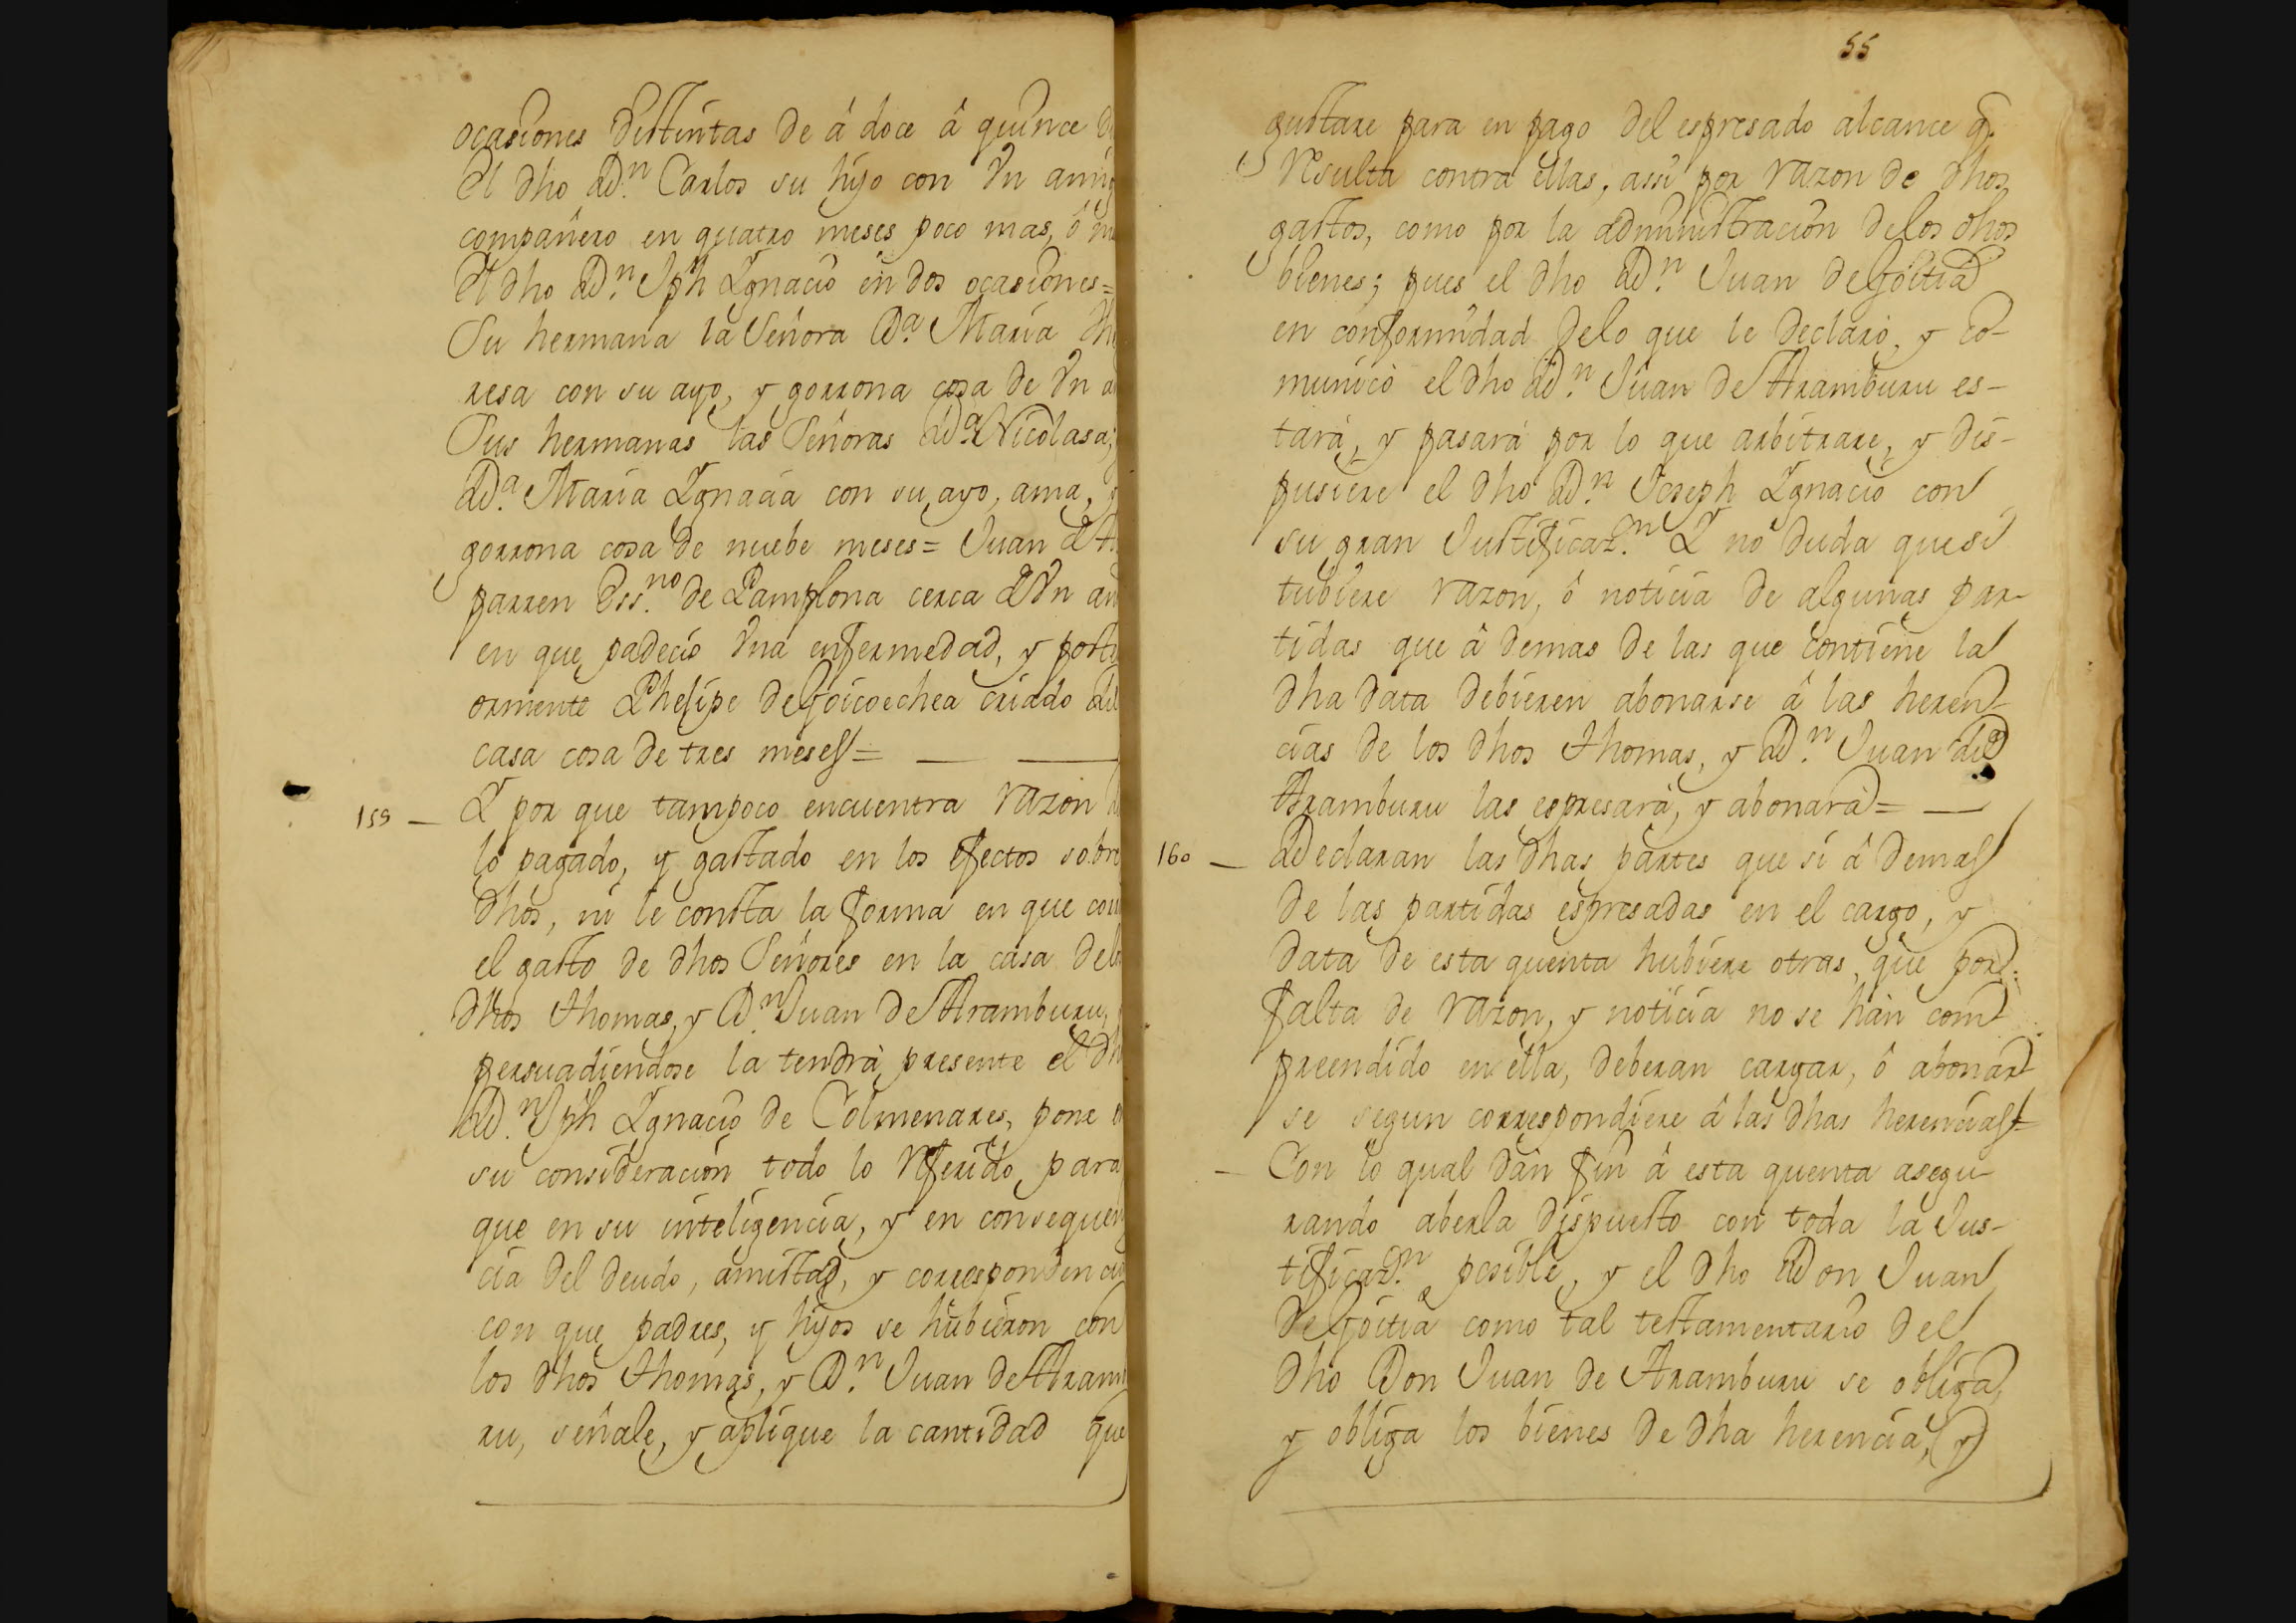 ocasiones distintas de â doce â quince
El dho D.n Carlos su hijo con Vn
compañero en quatro meses poco mas, ô
El dho D.n Jph Ygnacio en dos ocasiones=
Su hermana la Señora D.a Maria
resa con su ayo, y gorrona cosa de Vn
Sus hermanas las Señoras D.a Nicolasa,
D.a Maria Ygnacia con su ayo, ama,
gorrona cosa de nuebe meses= Juan
parren Ess.no de Pamplona cerca de Vn
en que padecio Vna enfermedad, y
ormente Phelipe de Goicoechea criado
casa cosa de tres meses=
159 — Y por que tampoco encuentra razon
lo pagado, y gastado en los efectos sobre
dhos, ni le consta la forma en que
el gasto de dhos Señores en la casa
dhos Thomas, y D.n Juan de Aramburu,
persuadiendose la tendrà presente el
D.n Jph Ygnacio de Colmenares, pone
su consideración todo lo referido para
que en su inteligencia, y en consequen
cia del deudo, amistad, y correspondencia
con que padres, y hijos se hubieron con
los dhos Thomas, y D.n Juan de Aram
ru, señale, y aplique la cantidad que
55
gustare para en pago del espresado alcance q.
resulta contra ellas, assi por razon de dhos
gastos, como por la administración de los dhos
bienes; pues el dho D.n Juan de Goitia
en conformidad de lo que le declarò, y co-
municò el dho D.n Juan de Aramburu es-
tarà, y pasarà por lo que arbitrare, y dis-
pusiere el dho D.n Joseph Ygnacio con
su gran Justificaz.on Y no duda que si
tubiere razon, ô noticia de algunas par-
tidas que â demas de las que contiene la
dha data debieren abonarse â las heren-
cias de los dhos Thomas, y D.n Juan de
Aramburu las espresarà, y abonarà= —
160 — Declaran las dhas partes que si â demas
de las partidas espresadas en el cargo, y
data de esta quenta hubiere otras, que por
falta de razon, y noticia no se hàn com
preendido en ella, deberan cargar, ô abonar
se segun correspondiere â las dhas herencias=
— Con lo qual dàn fin â esta quenta asegu-
rando aberla dispuesto con toda la Jus-
tificaz.on posible, y el dho Don Juan
de Goitia como tal testamentario del
dho Don Juan de Aramburu se obliga,
y obliga los bienes de dha herencia, y